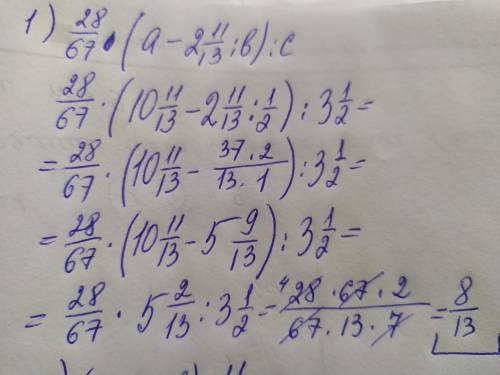 1) 28/67 · (a - 2 11/13 : b) : c
28/67 · (10 11/13 - 2 11/13 : 1/2) : 3 1/2 =
= 28/67 · (10 11/13 - 37 · 2/13 · 1) : 3 1/2 =
= 28/67 · (10 11/13 - 5 9/13) : 3 1/2 =
= 28/67 · 5 2/13 : 3 1/2 = 4 28 · 67 · 2/67 · 13 · 7 = 8/13